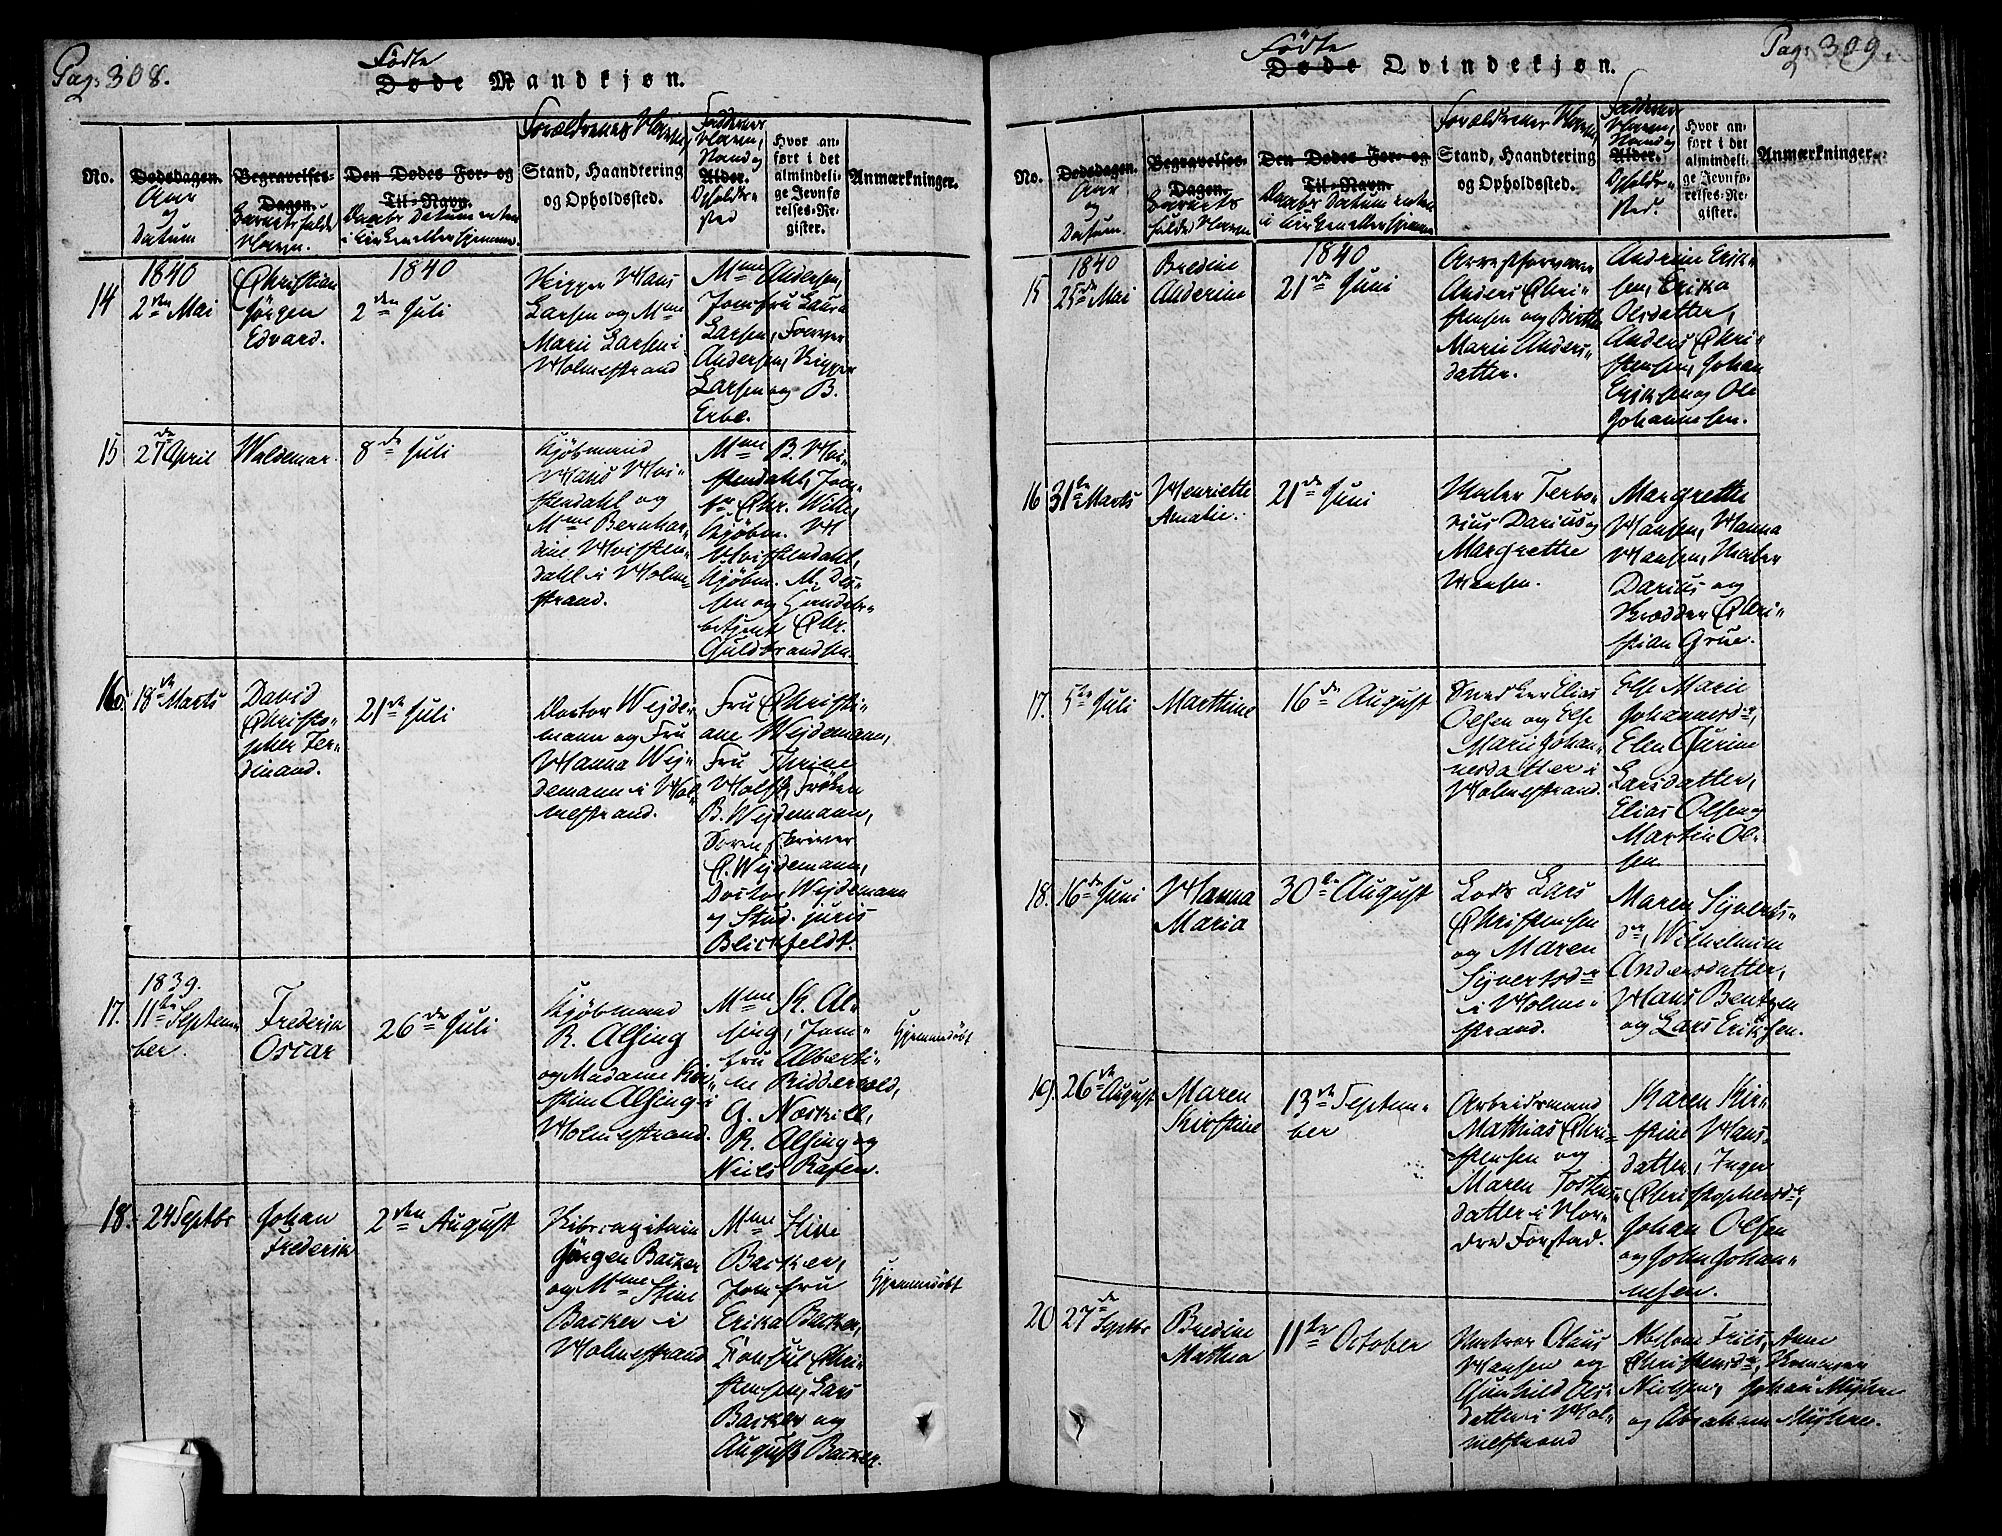 Pag. 308.
Födte
Døde Mandkjøn.
No.
Dødsdagen.
Aar
og
Datum
Begravelses-
Dagen.
Barnets fulde
Navn.
Den Dødes For- og
Til-Navn.
Daabs Datum enten
i Kirken eller hjemme.
Forældrenes Navne,
Stand, Haandtering
og Opholdssted.
Faddernes
Navn,
Stand og
Alder.
Opholds-
sted
Hvor an-
ført i det
almindeli-
ge Jevnfø-
relses-Re-
gister.
Anmærkninger.
14
1840
2den Mai
Christian
Jörgen
Edvard.
1840
2den Juli
Skipper Hans
Larsen og Mme
Marie Larsen i
Holmestrand
Mme Andersen,
Jomfru Laura
Larsen, Farver
Andersen, Skipper
Larsen og B.
Erbe.
15
27de April
Waldemar.
8de Juli
Kjöbmand
Hans Hvi-
stendahl og
Mme Bernhar-
dine Hvisten-
dahl i Holme-
strand.
Mme B. Hvi-
stendahl, Jom-
fr. Chr. Wille,
Kjöbm. H
Hvistendahl,
Kjöbm. M.
sen og Handels-
betjent Chr.
Guldbrandsen.
16.
18de Marts
David
Christo-
pher Fer-
dinand.
21de Juli
Doctor Wejde-
mann og Fru
Hanna Wej-
demann i Hol-
mestrand.
Fru Christi-
ane Wejdemann,
Fru Thrine
Wolff, Fröken
B. Wejdemann,
Sorenskriver
C. Wejdemann,
Doctor Wejdemann
og Stud. juris
Blickfeldt.
17.
1839.
11te Septem-
ber.
Frederik
Oscar
26de Juli
Kjöbmand
R. Alsing
og Madame Kir-
stine Alsing i
Holmestrand.
Mme K. Al-
sing, Jom-
fru Alberti-
ne Ridderwold,
G. Næskild,
R. Alsing og
Niels Rafen.
Hjemmedöbt
18.
24 Septbr
Johan
Frederik
2den August
Skibscapitain
Jörgen Backer
og Mme Stine
Backer i
Holmestrand
Mme Stine
Backer,
Jomfru
Erika Backer,
Konsul Chri-
stensen, Lars
Backer og
August Backer.
Hjemmedöbt
Pag. 309.
Födte
Døde Qvindekjøn.
No.
Dødsdagen.
Aar
og
Datum.
Begravelses-
Dagen.
Barnets
fulde Navn
Den Dødes For- og
Til-Navn.
Daabs Datum enten
i Kirken eller hjemme
Forældrenes Navne,
Stand, Haandtering
og Opholdssted.
Faddernes
Navn,
Stand og
Alder.
Opholds-
sted.
Hvor an-
ført i det
almindeli-
ge Jevnfø-
relses-Re-
gister.
Anmærkninger.
15
1840
25de Mai
Bredine
Anderine
1840
21de Juni
Arrestforvarer
Anders Chri-
stensen og Birthe
Marie Anders-
datter.
Andrine Erik-
sen, Erika
Olsdatter,
Anders Chri-
stensen, Johan
Eriksen og Ole
Johannesen.
16
31te Marts
Henriette
Amalie.
21de Juni
Maler Terbo-
rius Darius og
Margrethe
Hansen.
Margrethe
Hansen, Hanna
Hansen, Maler
Darius og
Skrædder Chri-
stian Grue.
17.
5te Juli
Marthine
16de August
Snedker Elias
Olsen og Else
Marie Johan-
nesdatter i
Holmestrand.
Else Marie
Johannesdr,
Elen Gurine
Larsdatter,
Elias Olsen og
Martin Ol-
sen.
18.
16de Juni
Hanna
Maria
30te August
Lods Lars
Christensen
og Maren
Syvertsdr
i Holme-
strand.
Maren Syverts-
dr, Wilhelmine
Andersdatter,
Hans Bentzen
og Lars Eriksen.
19.
26de August
Maren
Kirstine
13de Septem-
ber
Arbeidsmand
Mathias Chri-
stensen og
Maren Tosten-
datter i Nor-
dre Forstad.
Karen Kir-
stine Hans-
datter, Inger
Christophersdr,
Johan Olsen
og John Johan-
nesen.
20
27de Septbr
Bredine
Mathea
11te October
Matros Olaus
Hansen og
Gunhild Ols-
datter i Hol-
mestrand
Abelone Friis, Anne
Christensdr,
Nielsen, Johan Myhre
og Abraham Myhre.